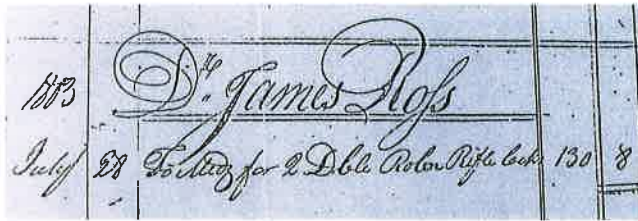 1803 Dr. James Ross
July 28 To Mdz for 2 Dble Roler Rifle locks 130 8